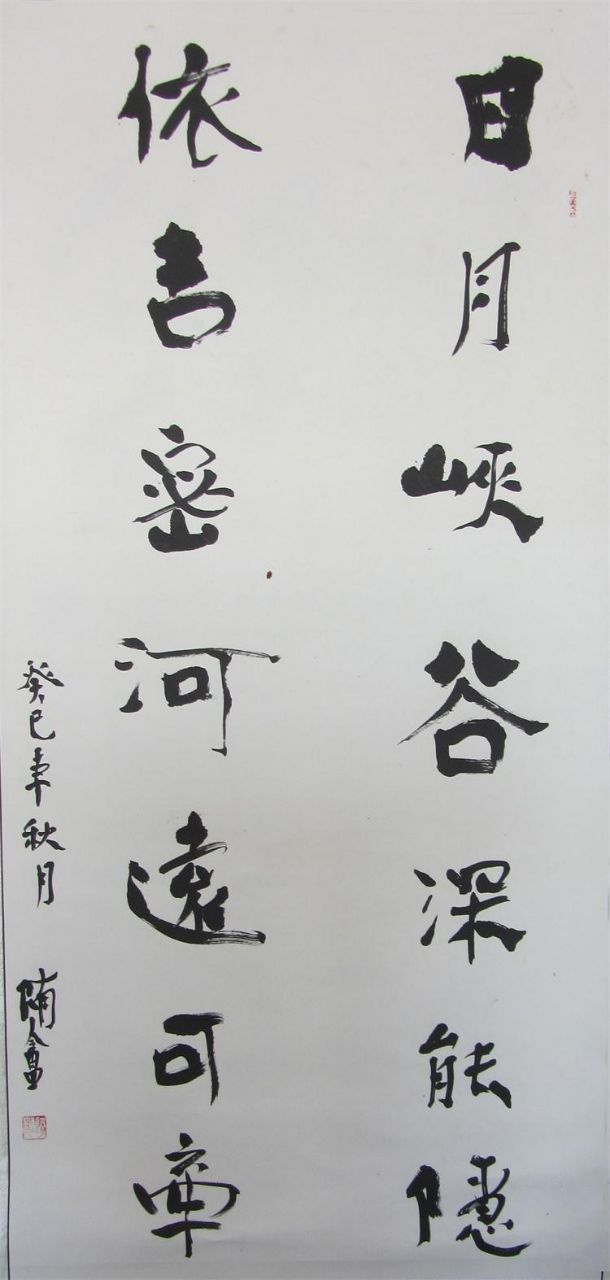 日月峽谷深能隱
依吉密河遠可牽
癸巳年秋月